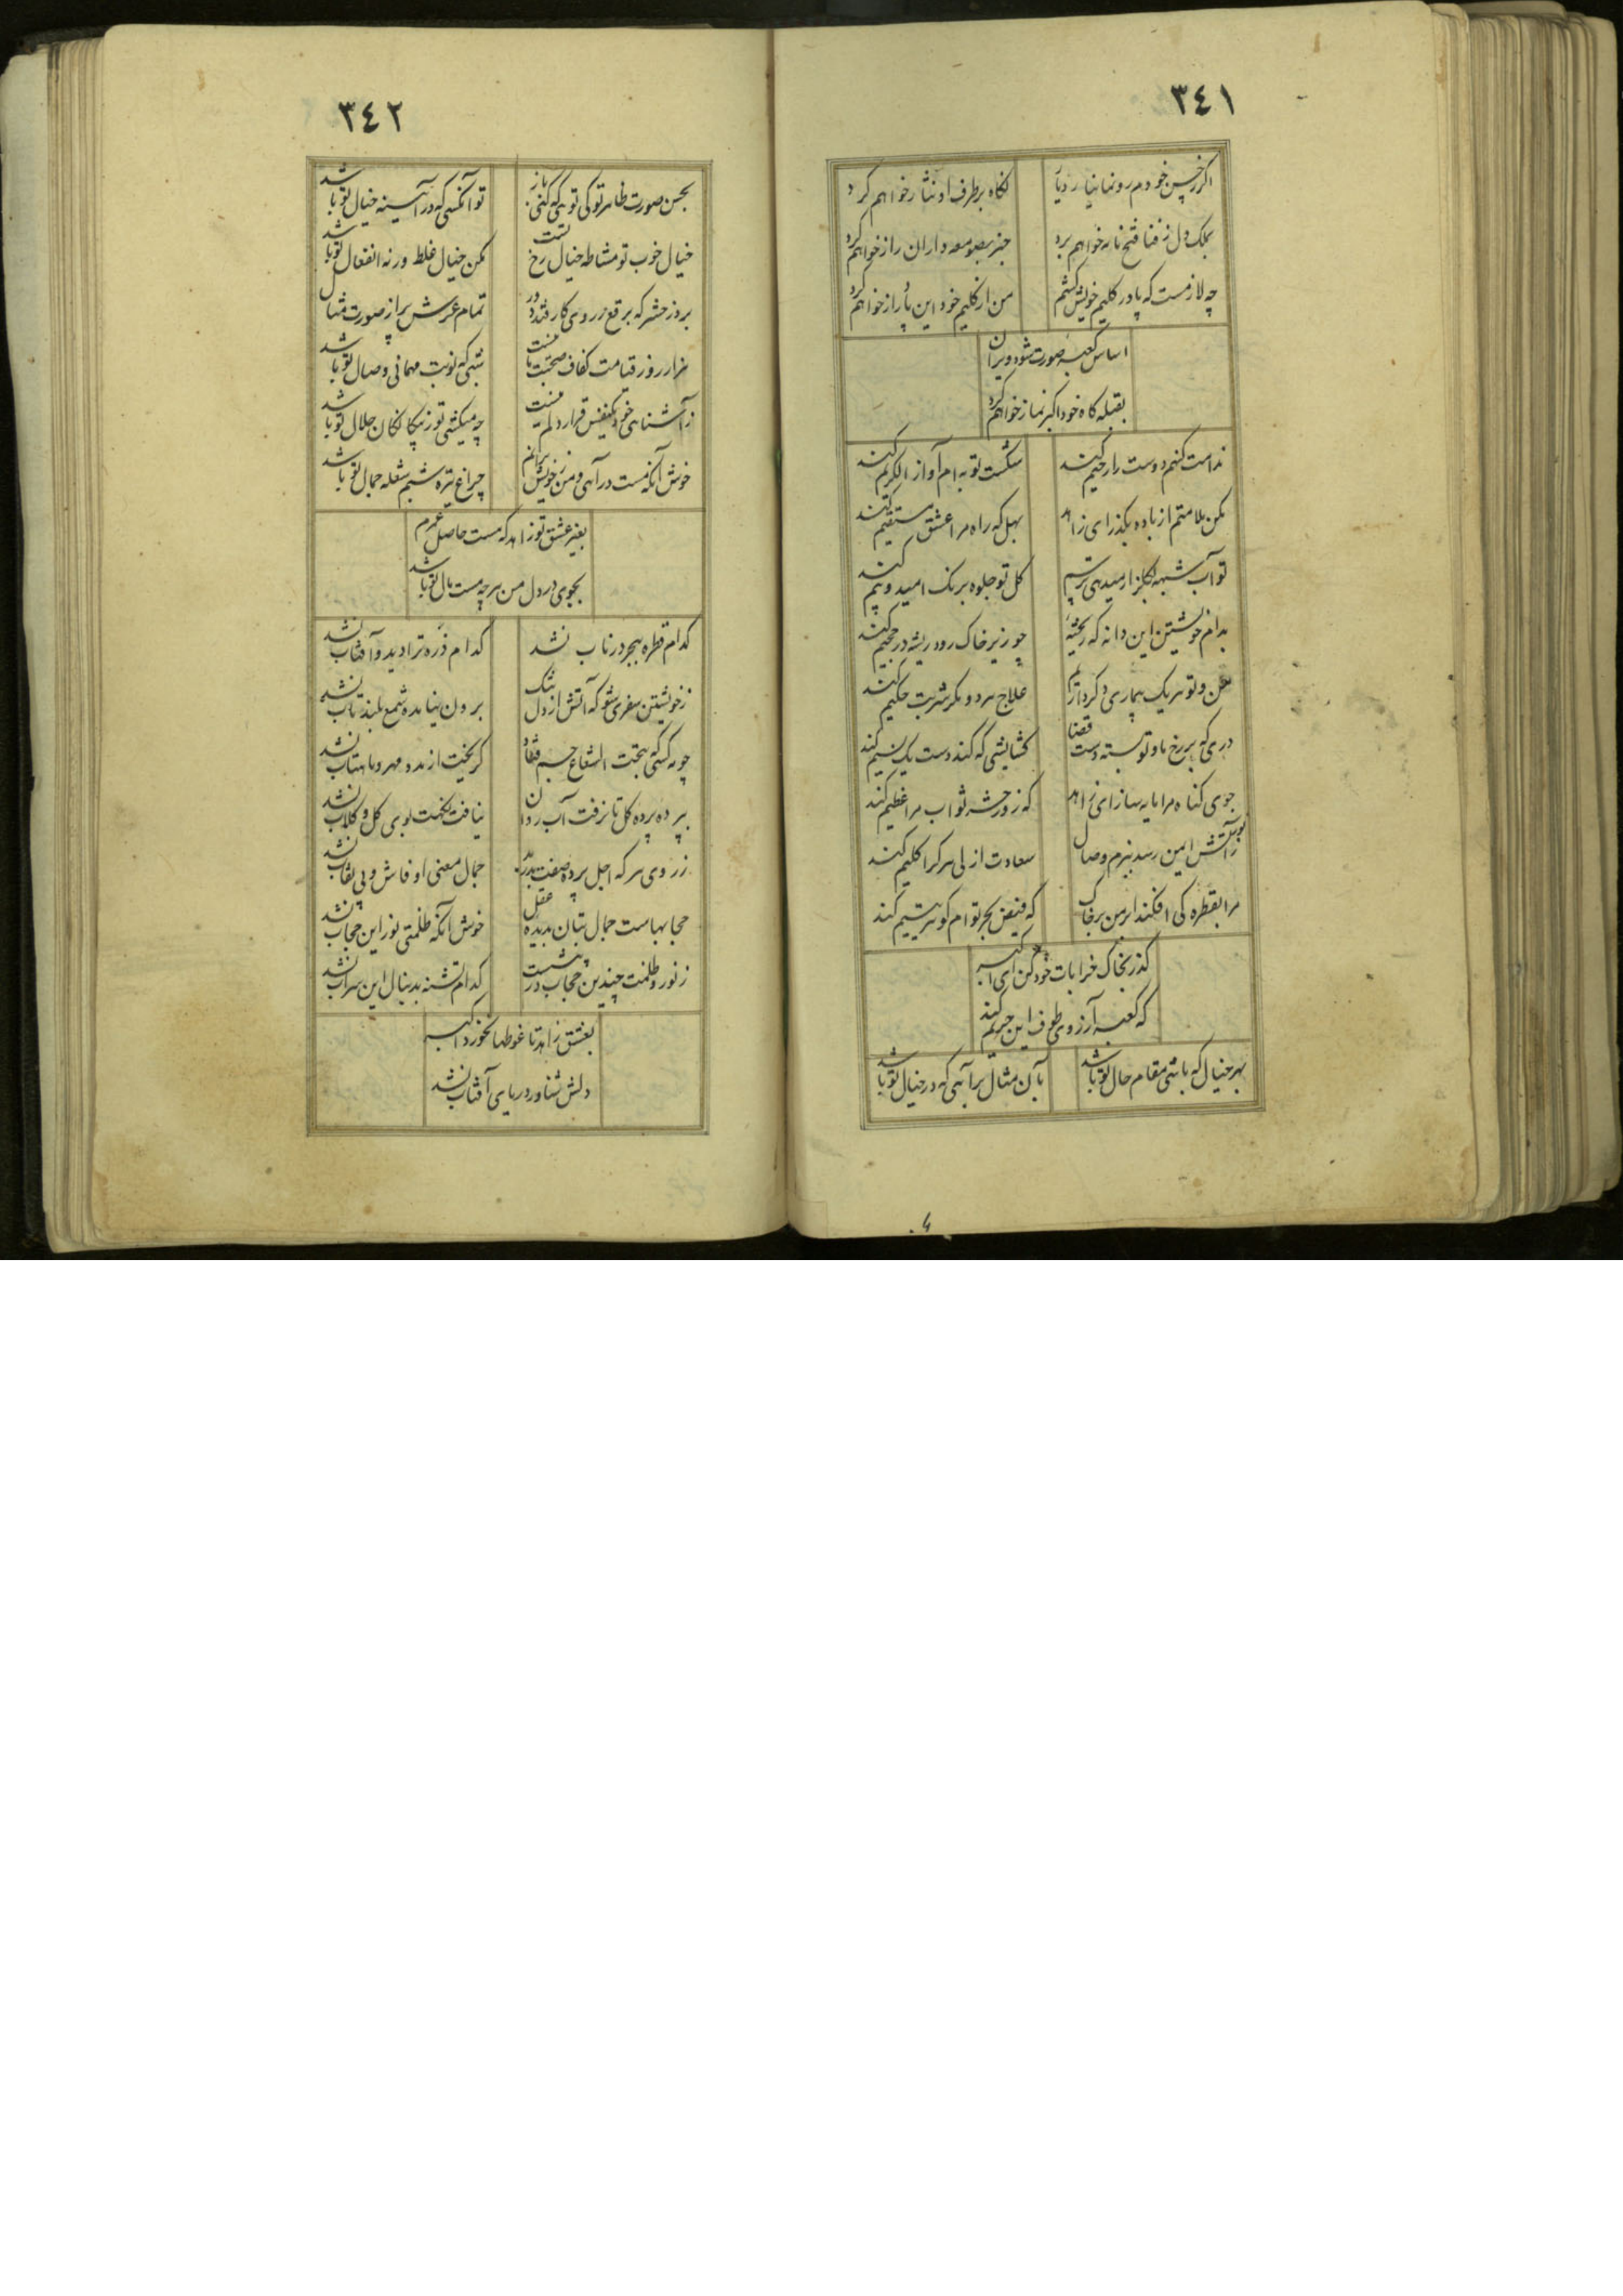 ٣٤١
اکر زحسن خودم رو نما نیارد یار
نکاه بر طرف او نثار خواهم کرد
بملک دل ز فنا فتح نامه خواهم برد
خبر بصومعه داران راز خواهم کرد
چه لازمست که پا در کلیم خویش کشم
من از کلیم خود این پا دراز خواهم کرد
اساس کعبه صورت شود ویران
بقبله کاه خود اکبر نماز خواهم کرد
ندامت کنهم دوست را رحیم کند
شکست توبه ام آواز الکریم کند
مکن ملامتم از باده بکذر ای زاهد
بهل که راه مرا عشق مستقیم کند
تو آب شبهه بکلزار میدهی ترسم
کل تو جلوه برنک امید و بیم کند
بدام خویشتن این دانه که ریخته
چو زیر خاک رود ریشه در جحیم کند
من و تو هر یک بیماری دکر داریم
علاج هر دو مکر شربت حکیم کند
دری که بر رخ ما و تو بسته دست قضا
کشایشی که کند دست یک نسیم کند
جوی کناه مرا مایه ساز ای زاهد
که روز حشر ثواب مرا عظیم کند
ز آتش ایمن رسد ببزم وصال
سعادت ازلی هر کرا کلیم کند
مرا بقطره کی افکند ابر من بر خاک
که فیض بحر توام کوهر یتیم کند
کذر بخاک خرابات خود کن ای اکبر
که کعبه آرزوی طوف این حریم کند
بهر خیال که باشی مقام حال تو باشد
بآن مثال برآیی که در خیال تو باشد
٣٤٢
بحسن صورت ظاهر تو کی توجه که کنی باز
تو آنکسی که در آیینه خیال تو باشد
خیال خوب تو مشاطه خیال رخ تست
مکن خیال غلط ورنه انفعال تو باشد
بروز حشر که برقع ز روی کار فتد دور
تمام عرش پر از صورت مثال
هزار روز قیامت کفاف صحبت ما نیست
شبی که نوبت مهمانی وصال تو باشد
ز آشنایی خود یکنفس قرار دلم نیست
چه میکشی تو ز بیکانکان حلال تو باشد
خوش آنکه مست درآیی و من ز خویش برآیم
چراغ تیره شبم شعله جمال تو باشد
بغیر عشق تو زاهد که هست حاصل عمرم
بجوی در دل من هر چه هست مال تو باشد
کدام قطره ببحر در ناب نشد
کدام ذره ترا دید و آفتاب نشد
ز خویشتن سفری شو که آتش از دل سنک
برون نیامده شمع بلند تاب نشد
چو مه کسی که بتحت الشعاع جسم فتاد
کریخت از مه و مهر و ماهتاب نشد
بپرده پرده کل تا نرفت آب روان
نیافت نکهت بوی کل و کلاب نشد
ز روی هر که اجل پرده صفت بدرید
جمال معنی او فاش و بی نقاب نشد
حجابهاست جمال بتان بدیده عقل
خوش آنکه ظلمتی نور این حجاب نشد
ز نور و ظلمت چندین حجاب در پیشست
کدام تشنه بدنبال این سراب نشد
بعشق زاهد تا غوطها نخورد اکبر
دلش شناور دریای آفتاب نشد